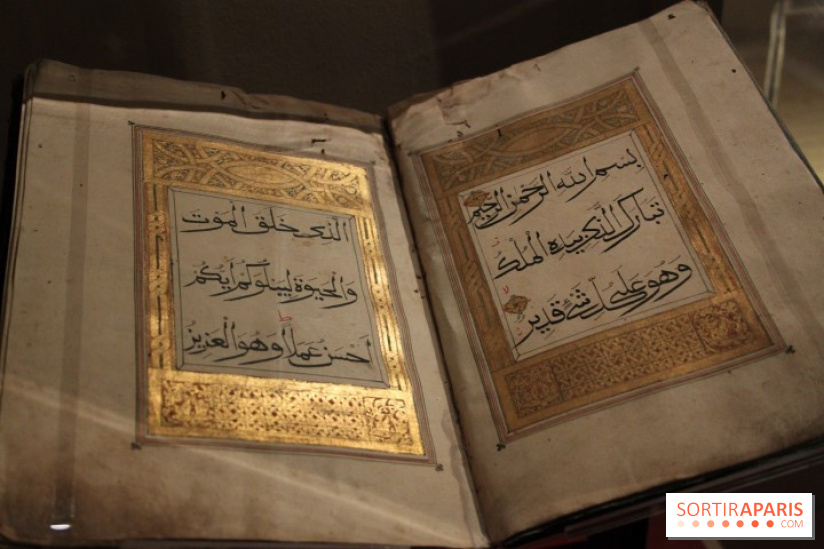 بِسْمِ اللَّهِ الرَّحْمَٰنِ الرَّحِيمِ
تَبَارَكَ الَّذِي بِيَدِهِ الْمُلْكُ
وَهُوَ عَلَى كُلِّ شَيْءٍ قَدِيرٌ
الَّذِي خَلَقَ الْمَوْتَ
وَالْحَيَوةَ لِيَبْلُوَكُمْ أَيُّكُمْ
أَحْسَنُ عَمَلًا وَهُوَ الْعَزِيزُ
SORTIRAPARIS
.COM